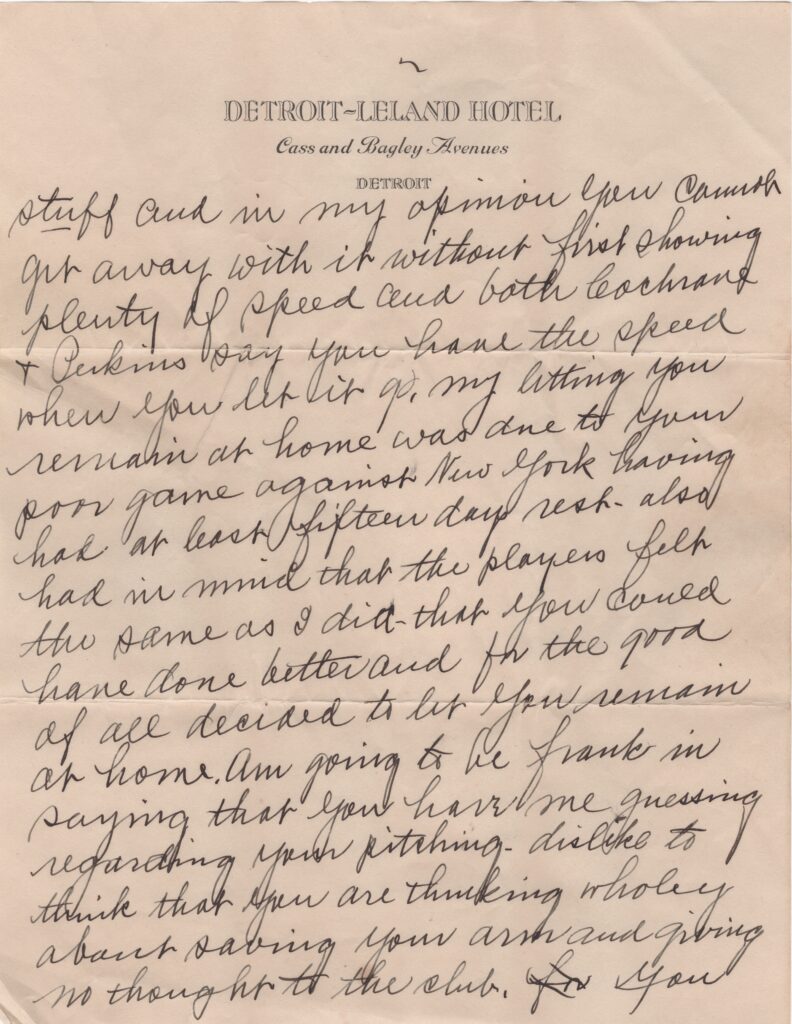 2
DETROIT-LELAND HOTEL
Cass and Bagley Avenues
DETROIT
stuff and in my opinion you cannot
get away with it without first showing
plenty of speed and both Cochrane
+ Perkins say you have the speed
when you let it go. my letting you
remain at home was due to your
poor game against New York having
had at least fifteen days rest - also
had in mind that the players felt
the same as I did - that you could
have done better and for the good
of all decided to let you remain
at home. Am going to be frank in
saying that you have me guessing
regarding your pitching - dislike to
think that you are thinking wholey
about saving your arm and giving
no thought to the club. for You